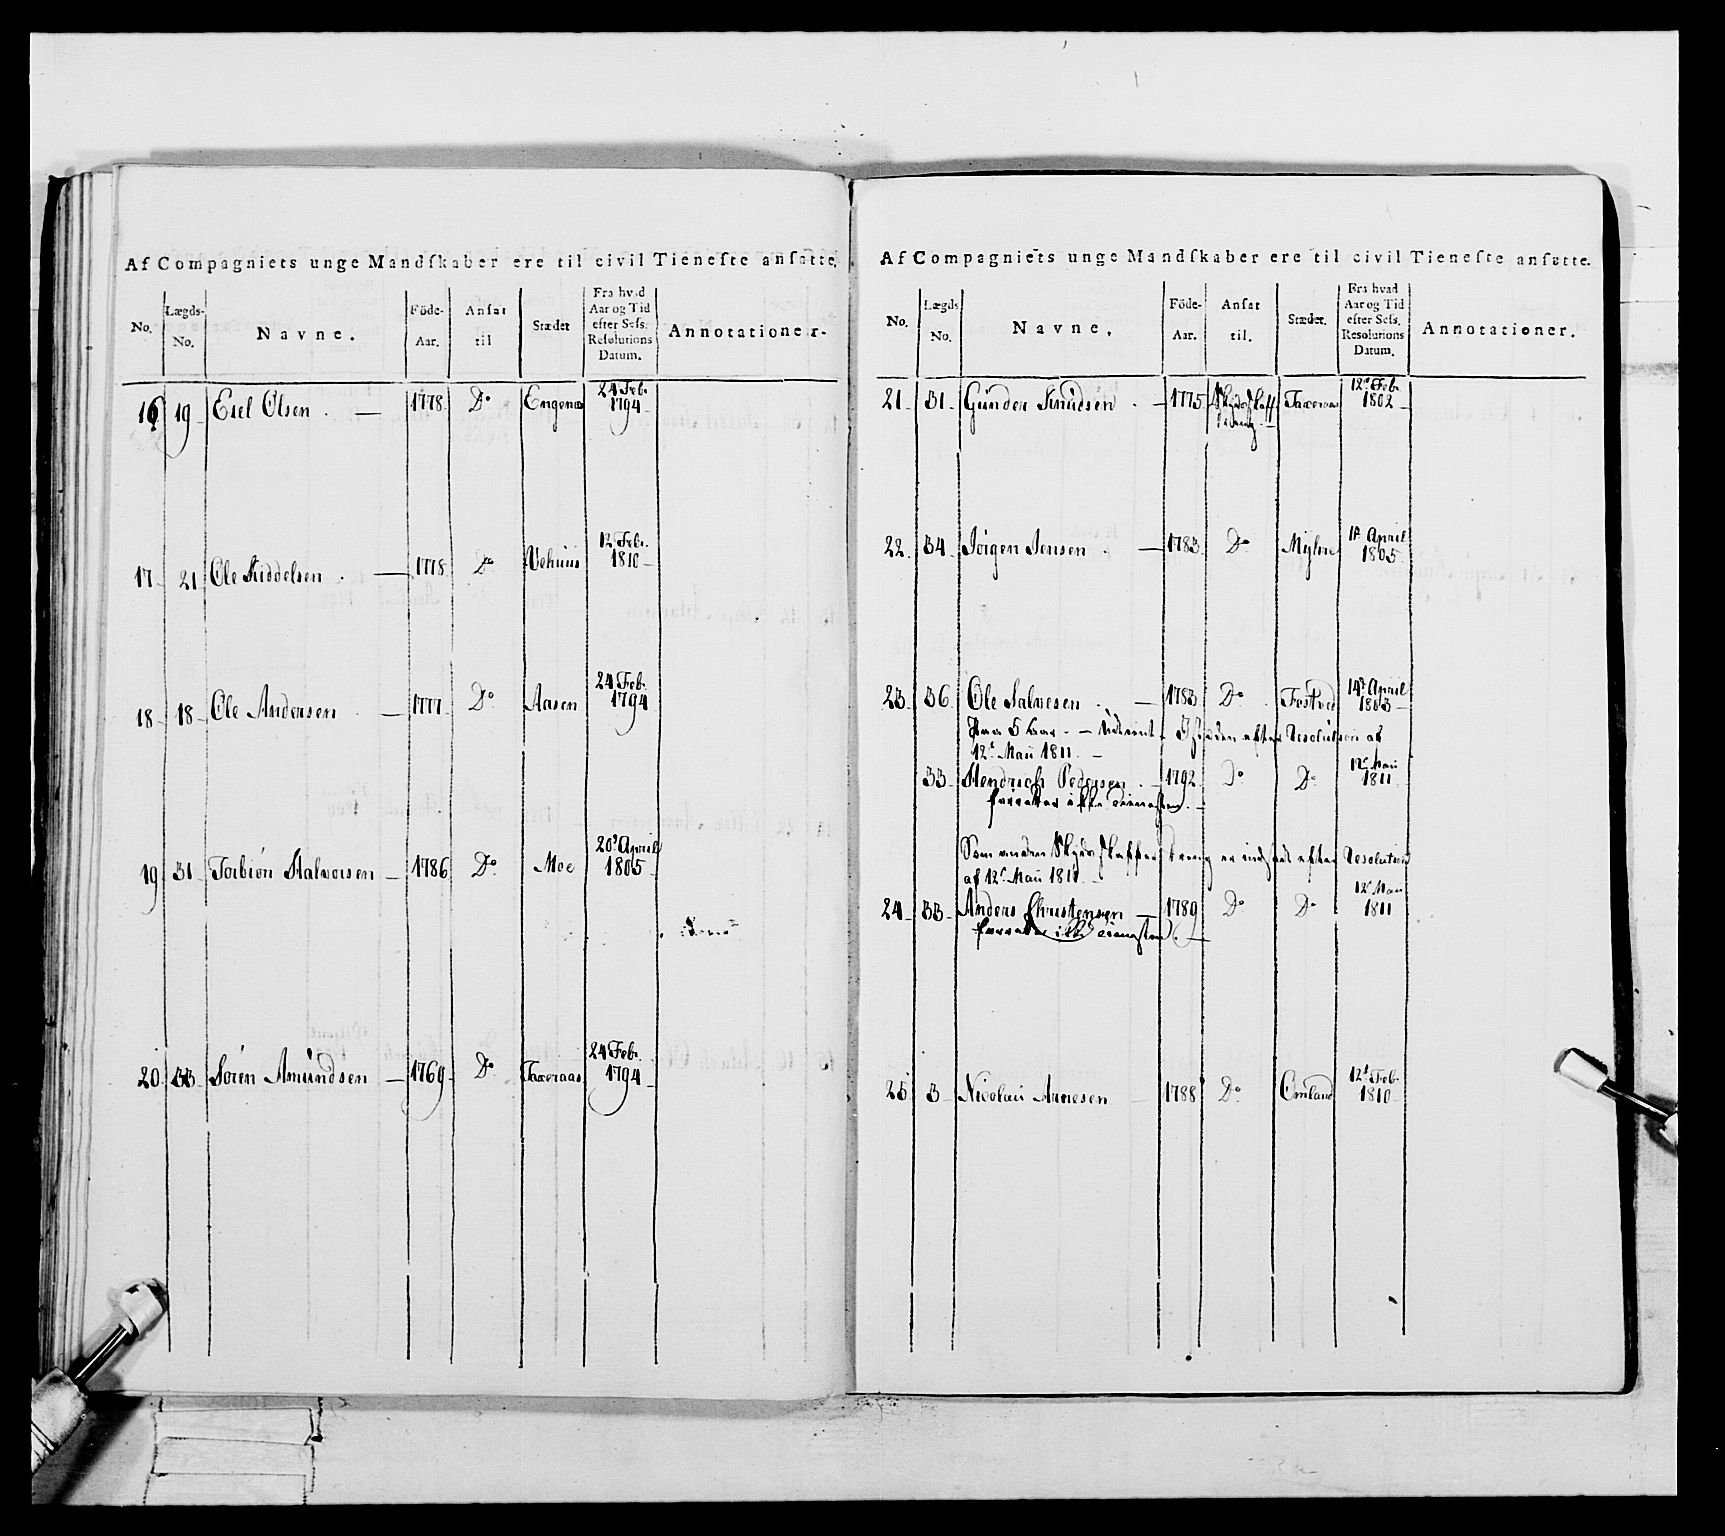 Af Compagniets unge Mandſkaber ere til civil Tieneſte anſatte.
No. Lægds-No. Navne. Föde-Aar. Anſat til Stædet Fra hvad Aar og Tid efter Seſs. Reſolutions Datum. Annotationer.
16 19 Esel Olsen . — 1778 Do Engenæs 24 Feb. 1794
17 21 Ole Kiddelsen . — 1778 Do Vehuus 12 Feb. 1810
18 18 Ole Andersen . — 1777 Do Aasen 24 Feb. 1794
19 31 Torbiön Halvorsen — 1786 Do Moe 20de April 1805
20 33 Sören Amundsen — 1769 Do Taxeraas 24 Feb. 1794
Af Compagniets unge Mandſkaber ere til civil Tieneſte anſatte.
No. Lægds No. Navne. Föde-Aar. Anſat til. Stædet. Fra hvad Aar og Tid efter Seſs. Reſolutions Datum. Annotationer.
21 31 Gunder Knudsen . — 1775 Taxeraas 12te Feb. 1802
22 34 Jörgen Jensen . — 1783 Do Myhre April 1805
23 36 Ole Salvesen . — 1783 Do Fostved 14de April 1803
Paa 5 Aar efter Resolution af
12te Maii 1811
33 Hendrich Pedersen . — 1792 Do Do 12te Maii 1811
forretter ikke Tienesten
Som anden er indsat efter Resolution
af 12te Maii 1811
24 33 Anders Christensen — 1789 Do Do 12te Maii 1811
forretter ikke Tienesten
25 3 Nicolai Arnesen — 1788 Do Omland 12te Feb. 1810